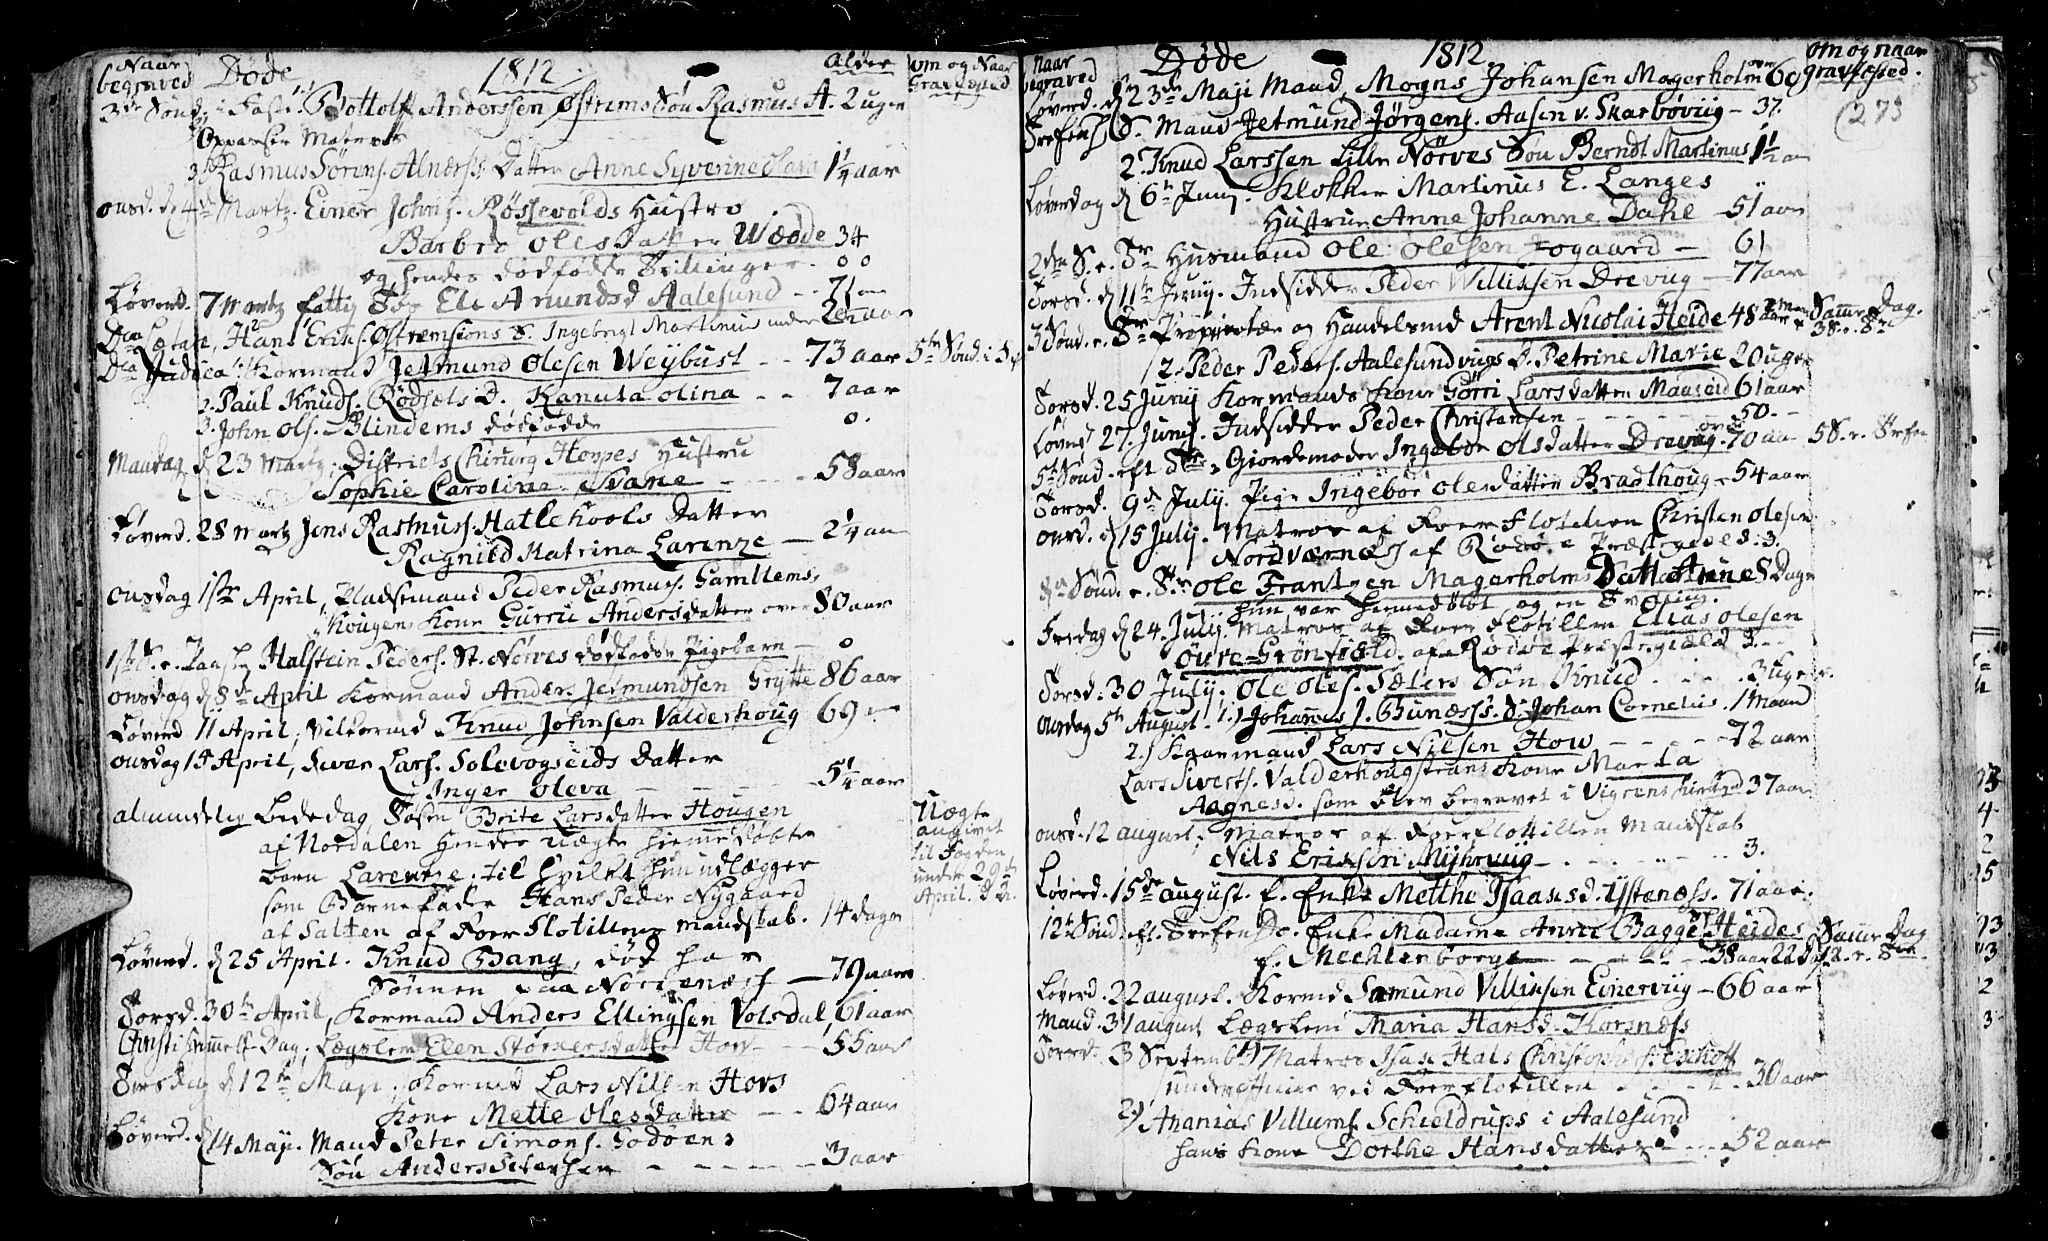 Naar begraved Døde 1812. Alder om og Naar Gravfæsted
3de Sønd. i Faste. Bottolf Anderssen Østrems Søn Rasmus A. 2 uger
3. Rasmus Sørens. Alnæss. Datter Anne Syverine Olava 1 1/4 aar
onsd. d 4de Martz. Einer Johns. Røssevolds Hustro
Barbro Olesdatter Wedde 34
og hendes dødfødde Tvillinger. 0 0
Løverd. 7 Martz fattig Eli Amundsd Aalesund 71
Hans Eriks. Østremsions S. Ingebrigt Martinus
Dca Judica Kormand Jetmund Olesen Weybust - - 73 aar
2. Paul Knuds. Rødsæts D. Kanuta Olina - - 7 aar
3. John Ols. Blindems dødfødde 0.
Mandag d 23 Martz. Districts Chirurg Hoypes Hustru
Sophie Carolina Svane 58 aar
Løverd. 28 Martz Jens Rasmuss. Hatlehools Datter
Ragnild Katrina Larenze 2 1/4 aar
onsdag 1ste April, Pladsemand Peder Rasmus. Gamllems,
Kougens Kone Gurru Andersdatter over 80 aar
Halstein Peders. St. Nørves dødfødde Pigebarn 0
onsdag d 8de April Kormand Anders Jetmundsen Grytte 86 aar
Løverd. 11 April, Knud Johnsen Valderhoug 69
onsdag 15 April, Iwer Lars. Solevogseids Datter
Inger Oleva 5 1/4 aar
almindelig Bededag, Brite Larsdatter Hougen
af Nordalen Hendes uægte hiemmedøbte
barn Larentze, til hvilket hun udlægger
som Barnefader Hans Peder Nygaard
af Salten af Roer Flotillens mandskab. 14 dage
Uægte
angivet
til Fogden
under 29de
April.
Løverd. d 25 April. Knud Bang, død hos
Sønnen paa Nørrenæs 79 aar
Torsd. 30te April, Kormand Anders Ellingsen Volsdal, 61 aar
Christi Himmelf. Dag, Lægslem Elen Størkersdatter How 55 aar
Tirsdag d 12te Maji. Kormd Lars Nilsen Hovs
Kone Mette Olesdatter 64 aar
Løverd. d 14 Maji. Mand Peter Simons. Godøens
Søn Anders Petersen 3 aar
naar begraved Døde 1812. om og naar gravfæsted.
Løverd. d 23de Maji Mand Mogns Johansen Magerholm over 60
(273
d. Mand Jetmund Jørgens. Aasen v. Skarbøviig 37.
2. Knud Larssen Lille Nørves Søn Berndt Martinus 1 1/2 aar
Løverdag d 6te Junj. Klokker Martinus E. Langes
Hustrue Anne Johanne Dahl 51 aar
2den S. e. Tr. Husmand Ole Olesen 61
Torsd. d 11te Junj. Indsidder Peder Willissen Drevug 77 aar
3 Sønd. e. Tr. Proprietær og Handelsmd Arent Nicolai Heide 48 aar Samme Dag.
2. Peder Peders. Aalesundvugs D. Petrine Marie 20 uger
Torsd. 25 Junij Kormands Kone Gørri Larsdatter Maaseid 61 aar
Løverd 27 Junij. Indsidder Peder Christensen 50.
5te Sønd. eft. Giordemoder Ingebor Olsdatter Drevug 70 aar
Torsd. 9de July. Pige Ingebor Olesdatter Bradthoug 54 aar
onsd. d 15 July. Matros af Roer Flotillen Christen Olesen
Nordværnes af Rødøe Præstegield. 3.
Sønd. e. Tr. Ole Frantzen Magerholms Datter Anne 8 Dage
hun var hiemmedøbt og en Tvilling.
Fredag d 24. July. Matros af Roer Flotillen Elias Olesen
Øvre-Grønfield. af Rødøe Præstegield 3.
Torsd. 30 July. Ole Oles. Sæters Søn Knud 3 Uger.
onsdag 5te August. 1.) Johannes J. Bunæss. S. Johan Cornelius. 1 Maaned
2.) Kaarmand Lars Nilsen How 72 aar
Lars Siverts. Valderhougstrans Kone Marta
Aagnesd. som blev begravet i Vigrens 37 aar
onsd. 12 august, Matros af Roerflottillen Mandskab
Nils Erichsen Myhrvug 3.
Løverd. 15de august. f. Enke Metthe Isaaksd. Ystenæss. 71 aar.
12te Sønd. eft. Trefen. Enke Madame Anne Bagge Heides Samme Dag
f. Mechlenborg 38 aar
Løverd. 22 august. Kormd Samund Villiksen Einerviig 66 aar
Mand. 31 august Lægslem Maria Hansd. Korsnæss
Torsd. 3 Septemb. Matros Isak Hals
ved Roerflotillen 30 aar
2) Ananias Villums. Schieldrups i Aalesund
hans Kone Dorthe Hansdatter 52 aar